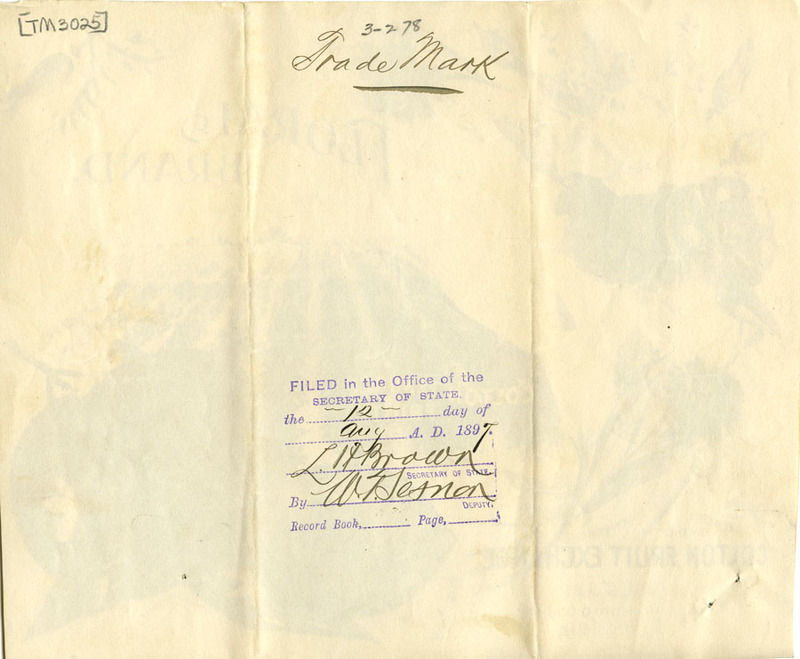 [TM3025]
3-2 78
Trade Mark
FILED in the Office of the
SECRETARY OF STATE,
the 12 day of
Aug A. D. 1897.
L. H Brown
SECRETARY OF STATE.
By
DEPUTY.
Record Book, Page,
FLORAL
BRAND.
COLTON FRUIT EXCHANGE